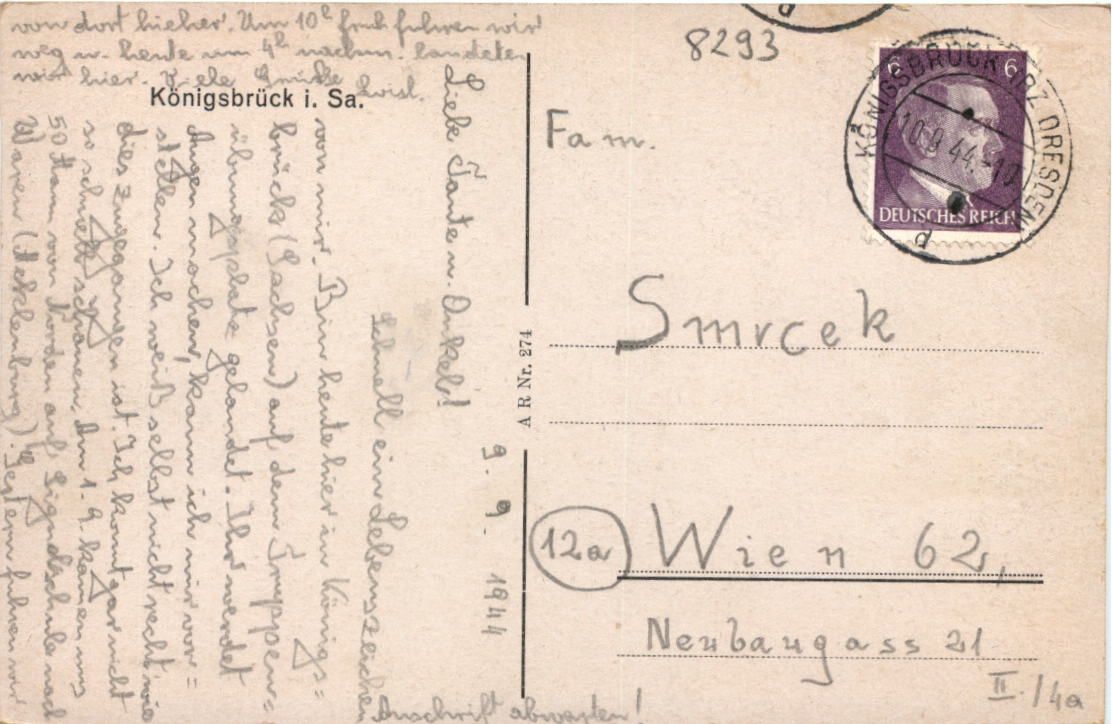 9. 9. 1944
Liebe Tante u. Onkel!
Schnell ein Lebenszeichen
von mir. Bin heute hier in Königs=
brück (Sachsen) auf dem Truppen=
übungsplatz gelandet. Ihr werdet
Augen machen, kann ich mir vor=
stellen. Ich weiß selbst nicht recht wie
dies zugegangen ist. Ich konnte gar nicht
so schnell schauen. Am 1.9. kamen uns
50 Mann von Norden auf nach
Waren (Mecklenburg). Gestern fuhren wir
von dort hieher. Um 10h früh fuhren wir
weg u. heute um 4h nachm. landeten
wir hier. Viele Grüße Loisl.
Anschrift abwarten!
Königsbrück i. Sa.
A R Nr. 274
8293
6 6
DEUTSCHES REICH
KÖNIGSBRÜCK (BZ DRESDEN)
10.9.44.-10
d
Fam.
Smrcek
12a Wien 62,
Neubaugass 21
II./4a